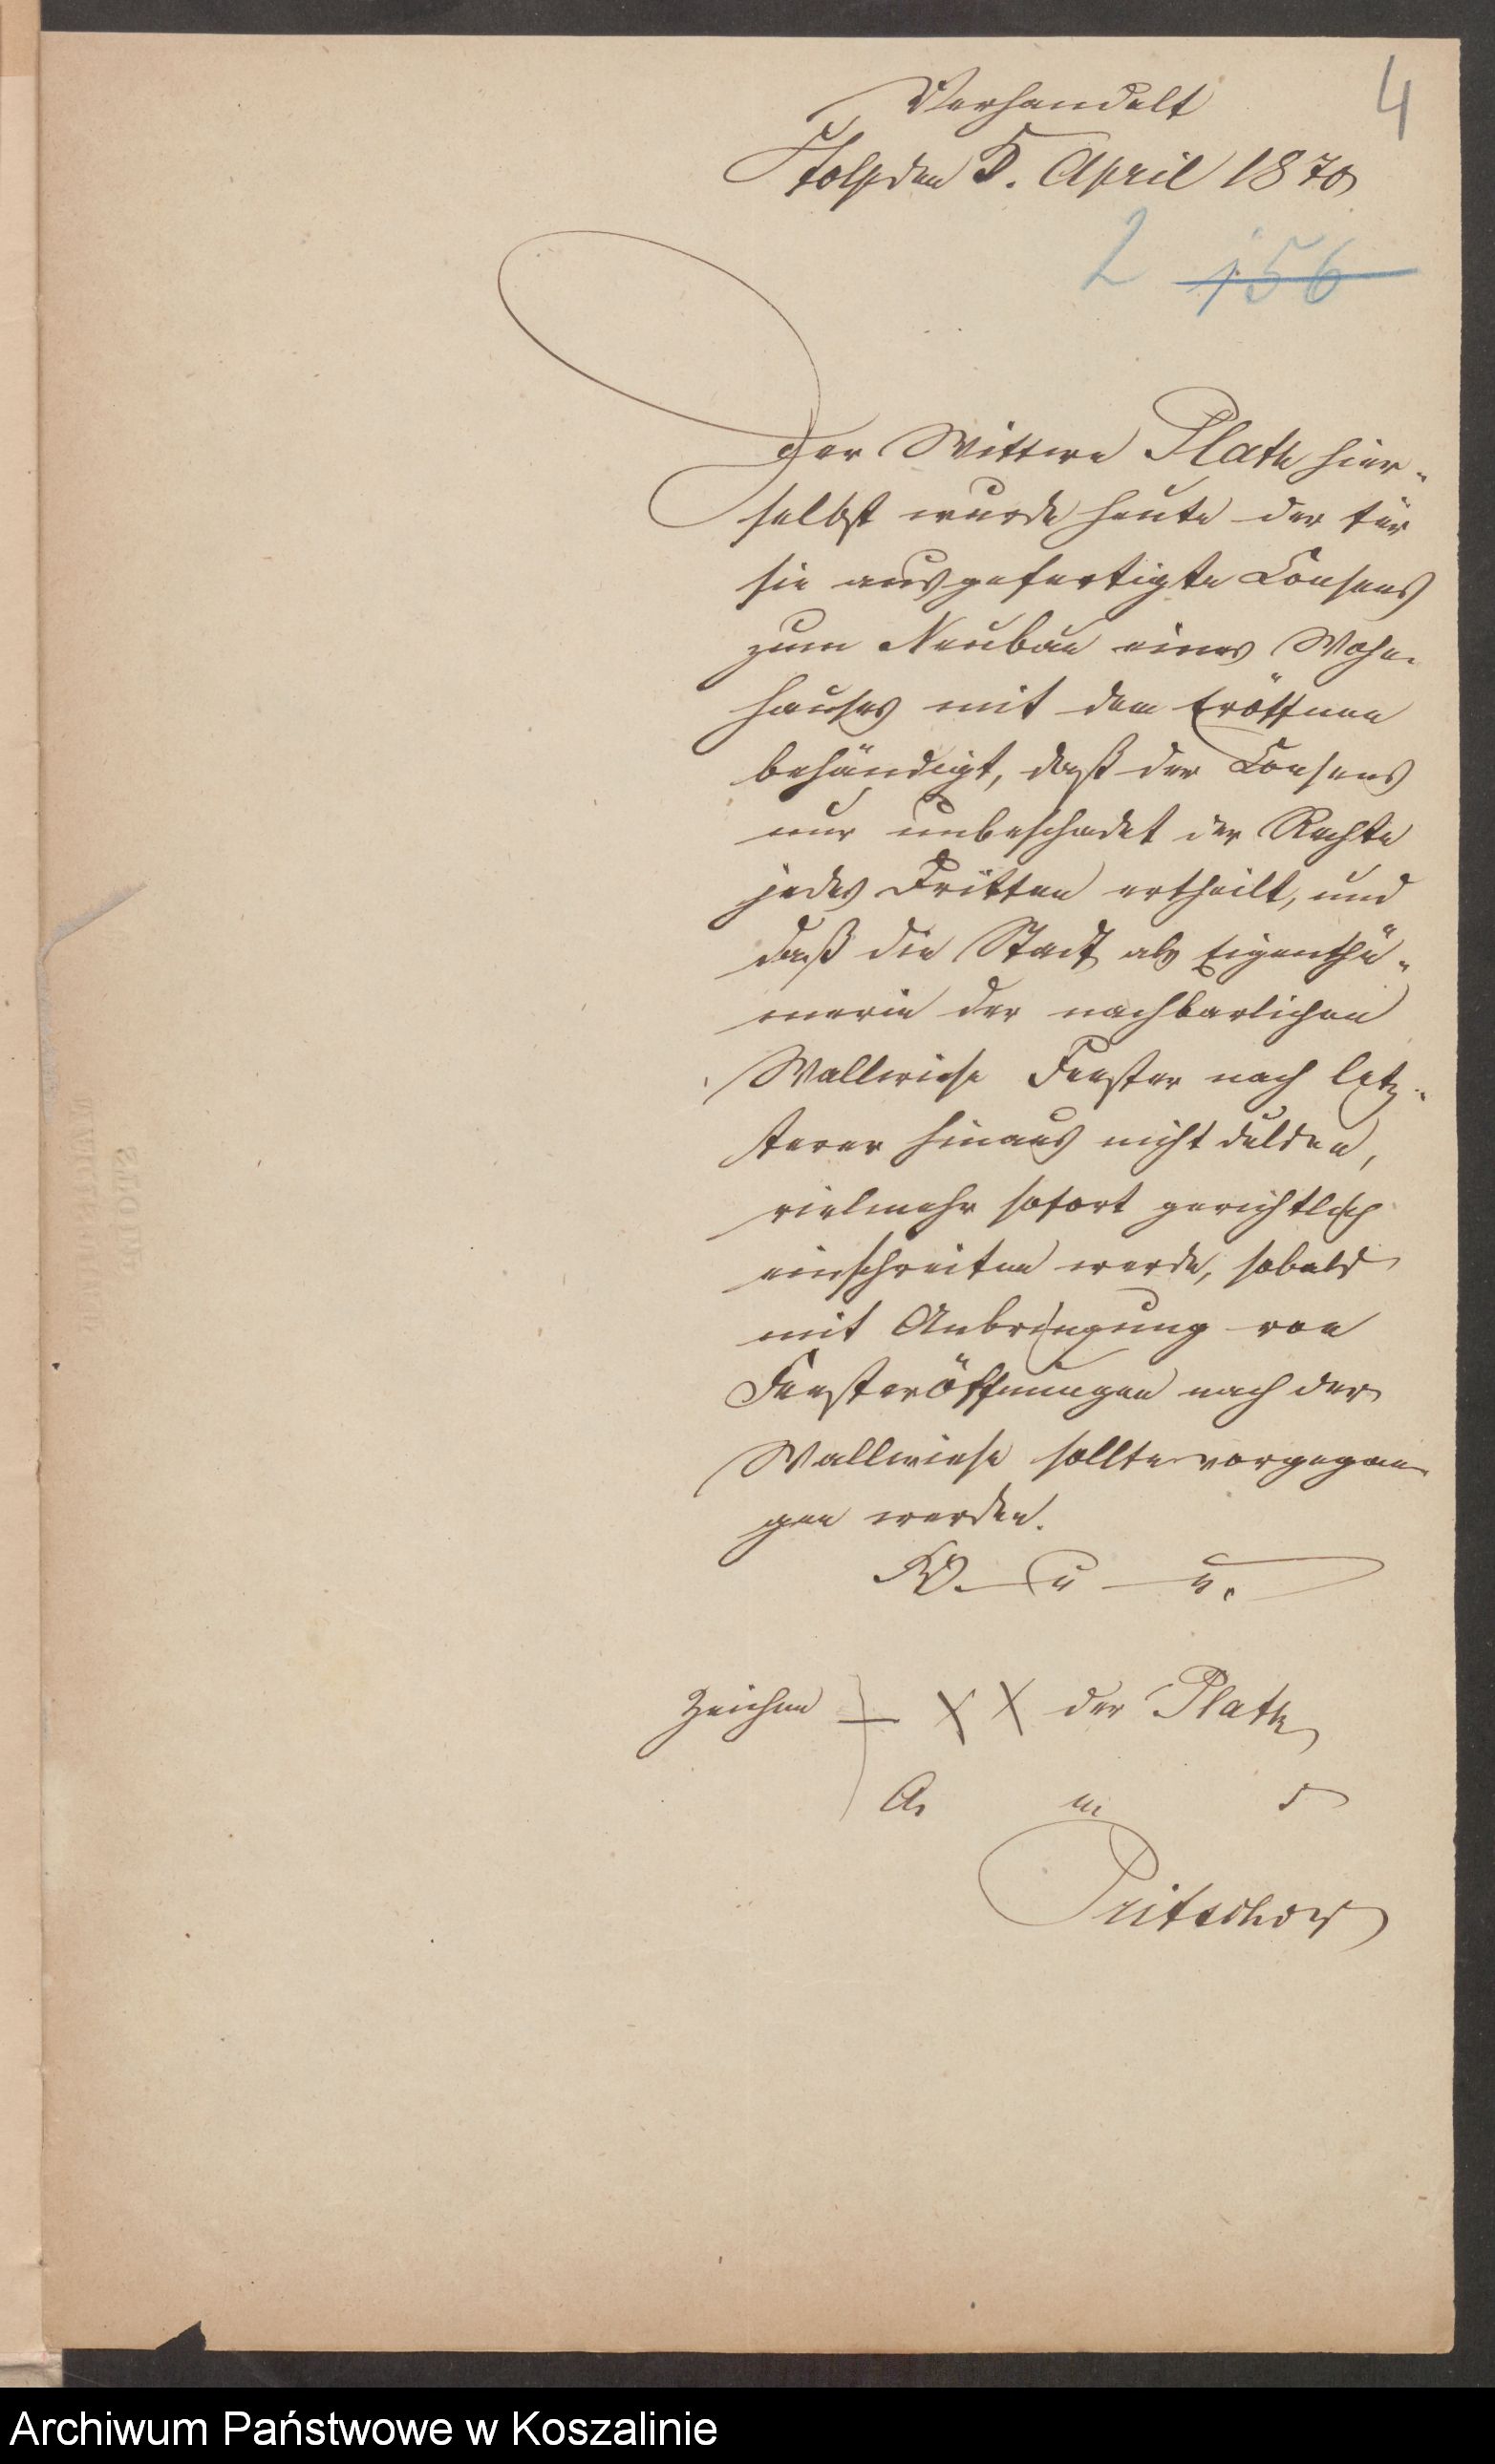 4
Verhandelt
Stolp den 5. April 1870
2 156
Der Wittwe Plath hier-
selbst wurde heute der für
sie ausgefertigte Consens
zum Neubau eines Wohn-
hauses mit dem Eröffnen
behändigt, daß der Consens
nur unbeschadet der Rechte
jedes Dritten ertheilt, und
daß die Stadt als Eigenthü-
merin der nachbarlichen
Wallwiese Fenster nach letz-
terer hinaus nicht dulden,
vielmehr sofort gerichtlich
einschreiten werde, sobald
mit Anbringung von
Fensteröffnungen nach der
Wallwiese sollte vorgegan-
gen werden.
V. u. u.
Zeichen + X X der Plath
A. u. s
Pritschow
Archiwum Państwowe w Koszalinie